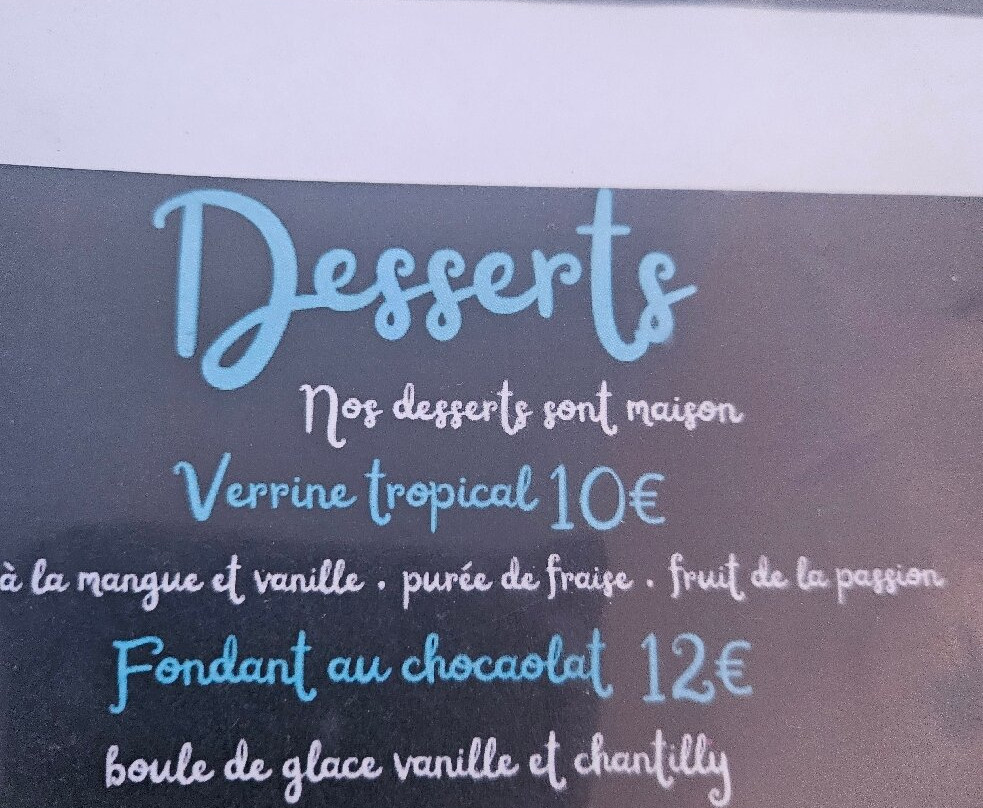 Desserts
Nos desserts sont maison
Verrine tropical 10€
à la mangue et vanille . purée de fraise . fruit de la passion
Fondant au chocaolat 12€
boule de glace vanille et chantilly